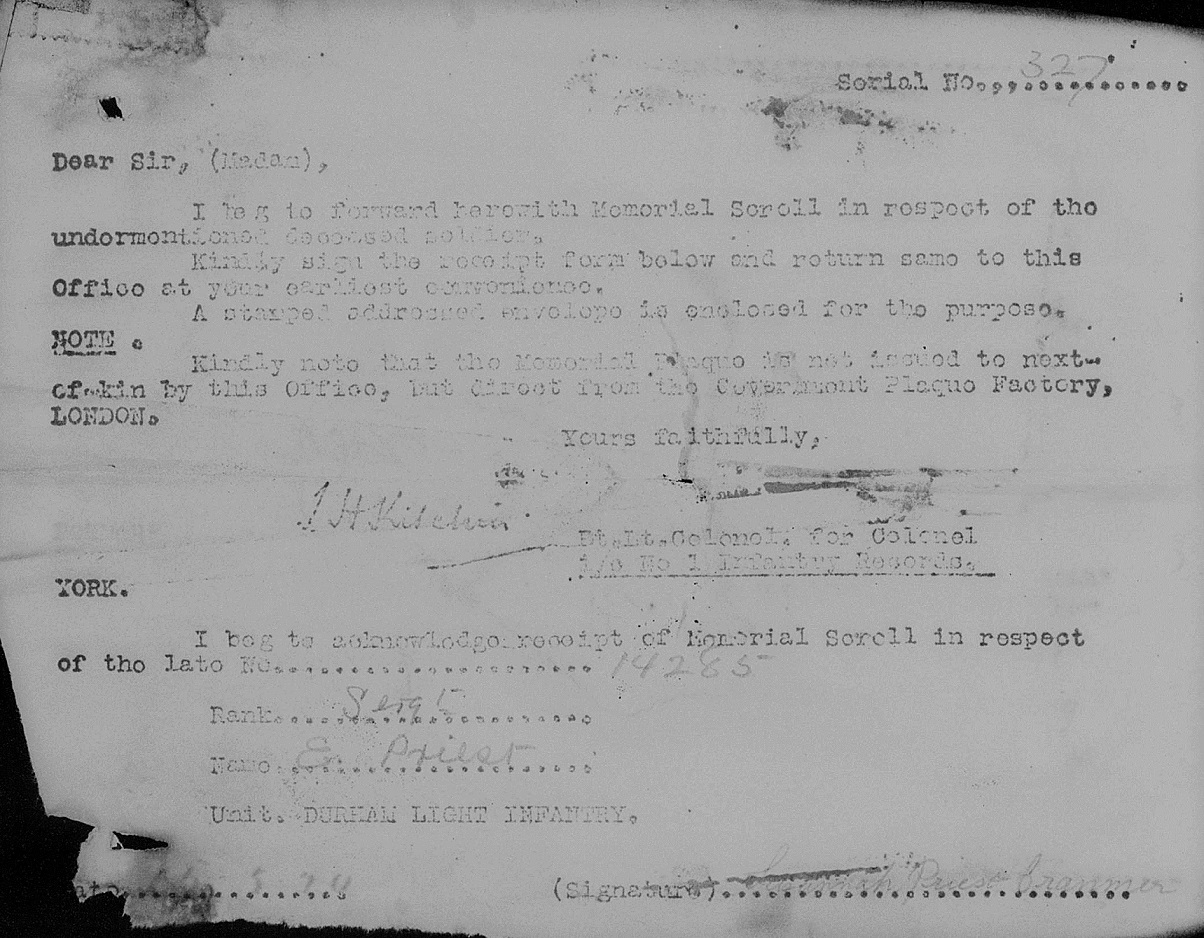 Serial No. 327
Dear Sir, (Madam),
I beg to forward herewith Memorial Scroll in respect of the
undermentioned deceased soldier.
Kindly sign the receipt form below and return same to this
Office at your earliest convenience.
A stamped addressed envelope is enclosed for the purpose.
NOTE .
Kindly note that the Memorial Plaque is not issued to next-
of-kin by this Office, but direct from the Government Plaque Factory,
LONDON.
Yours faithfully,
Bt.Lt.Colonel. for Colonel
i/c No 1 Infantry Records.
YORK.
I beg to acknowledge receipt of Memorial Scroll in respect
of the late No........................ 14285
Rank....Sergt............
Name. E. Priest.....
Unit. DURHAM LIGHT INFANTRY.
(Signature) Priest Cranmer